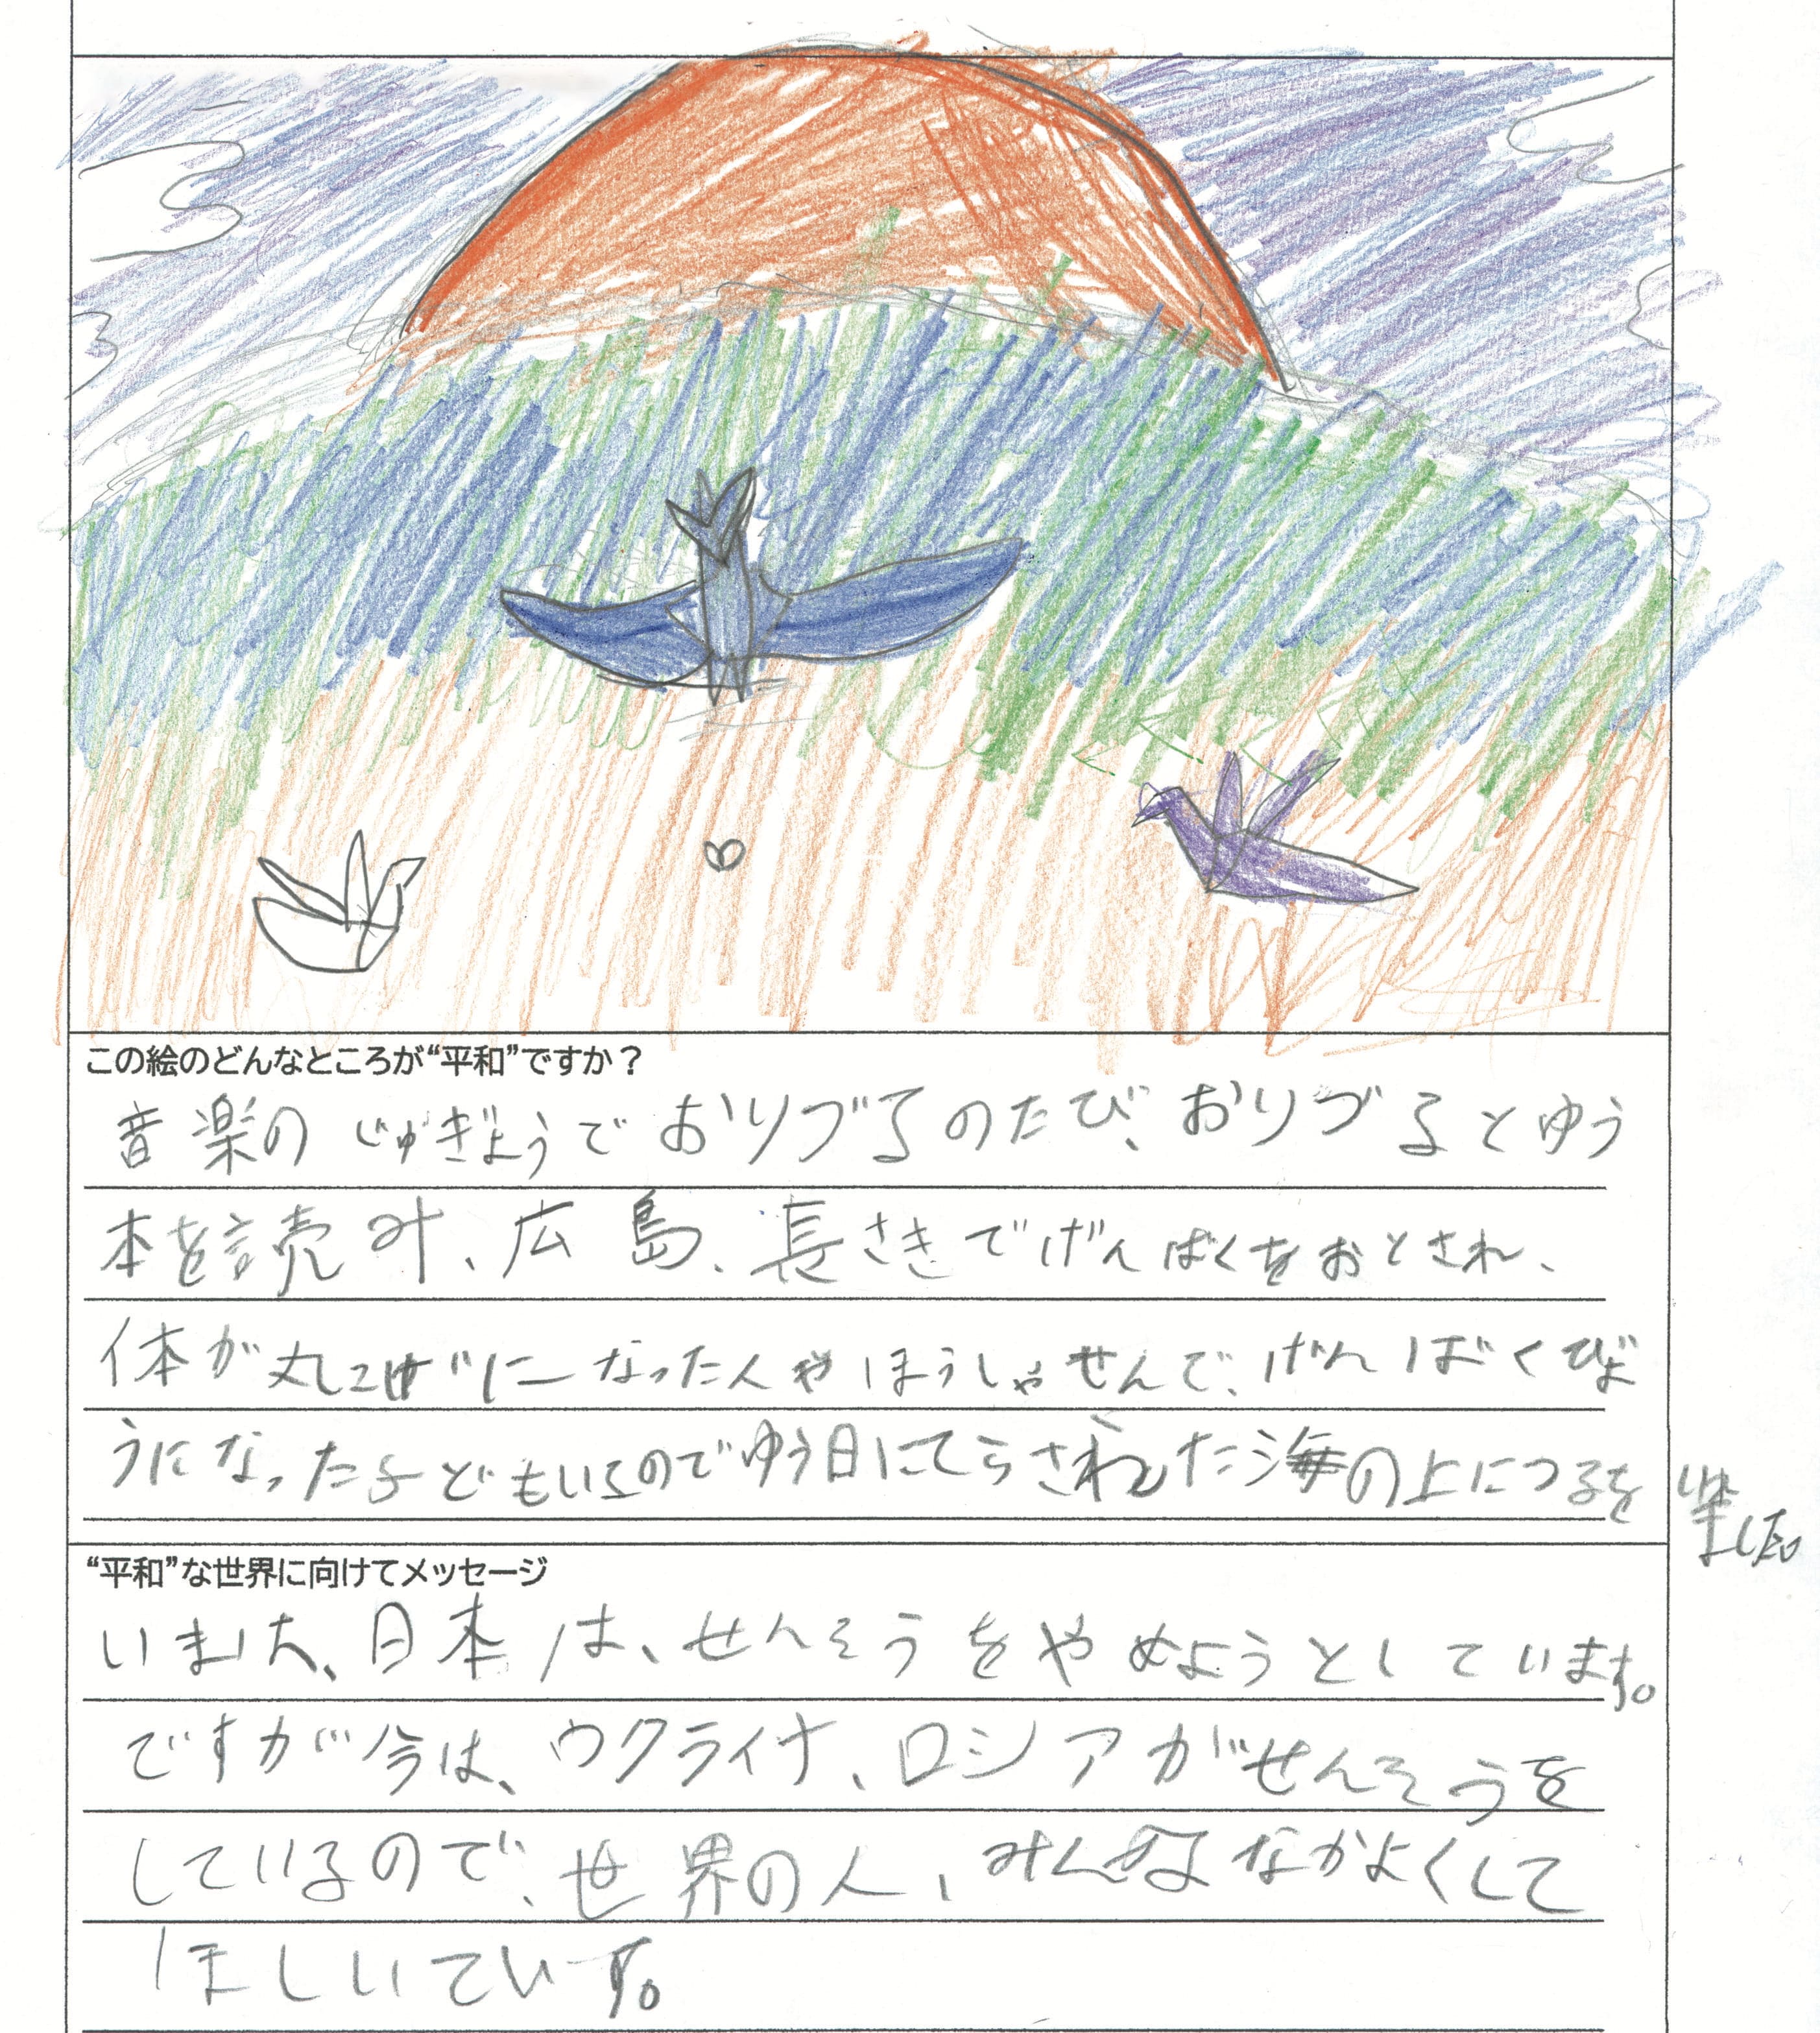 この絵のどんなところが“平和”ですか？
音楽のじゅぎょうでおりづるのたび、おりづるとゆう
本を読み、広島、長さきでげんばくをおとされ、
体が丸こげになった人やほうしゃせんで、げんばくびょ
うになった子どもいるのでゆう日にてらされた海の上につるを
“平和”な世界に向けてメッセージ
いまは、日本は、せんそうをやめようとしています。
ですが今は、ウクライナ、ロシアがせんそうを
しているので、世界の人、みんななかよくして
ほしいです。